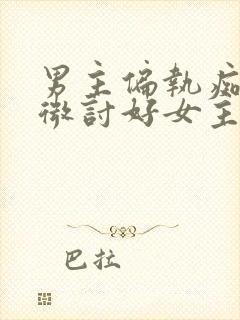 男主偏執痴
微討好女主
巴拉